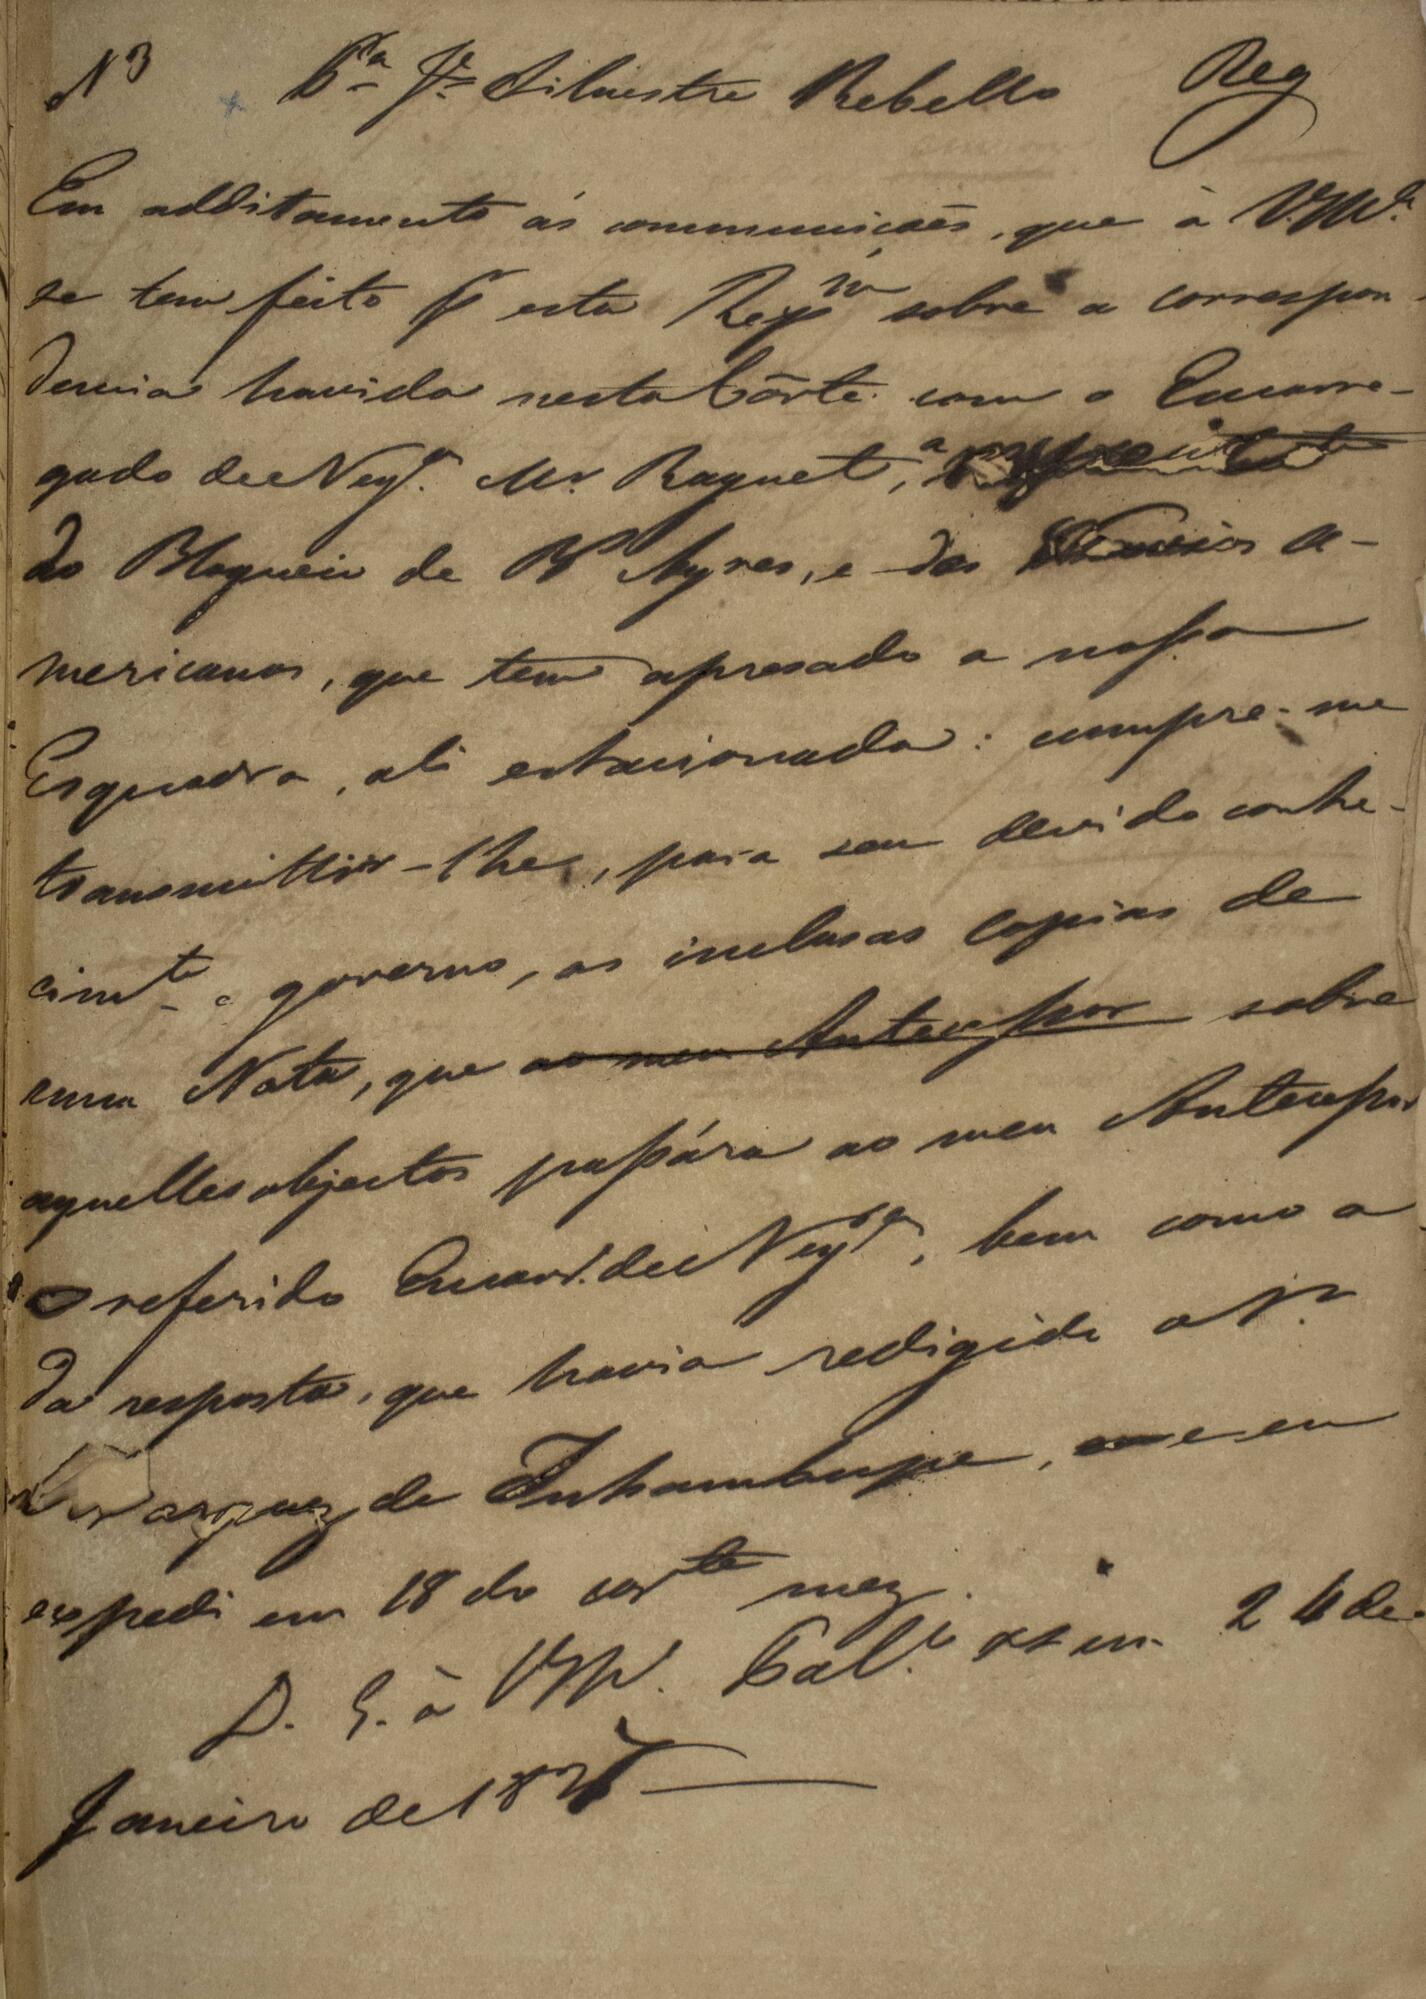 N 3 Pª Jé Silvestre Rebello Reg
Em additamento ás communicações, que à V.Mcê
se tem feito pr esta Repam sobre a correspon-
dencia havida nesta Côrte com o Encarre-
gado de Negos Mr. Raguet, a
do Bloqueio de Bs Ayres, e dos Navios A-
mericanos, que tem apresado a nossa
Esquadra, ali estacionada: cumpre-me
transmittir-lhe, para seu devido conhe-
cimto e governo, as inclusas copias de
uma Nota, que ao meu Antecessor sobre
aquelles objectos passára ao meu Antecessor
o referido Encard. de Negos, bem como a
da resposta, que havia redigido o Sr.
Marquez de Inhambupe, e eu
expedi em 18 do corte mez.
D. G. à V.M. Palo em 24 de
Janeiro de 1827